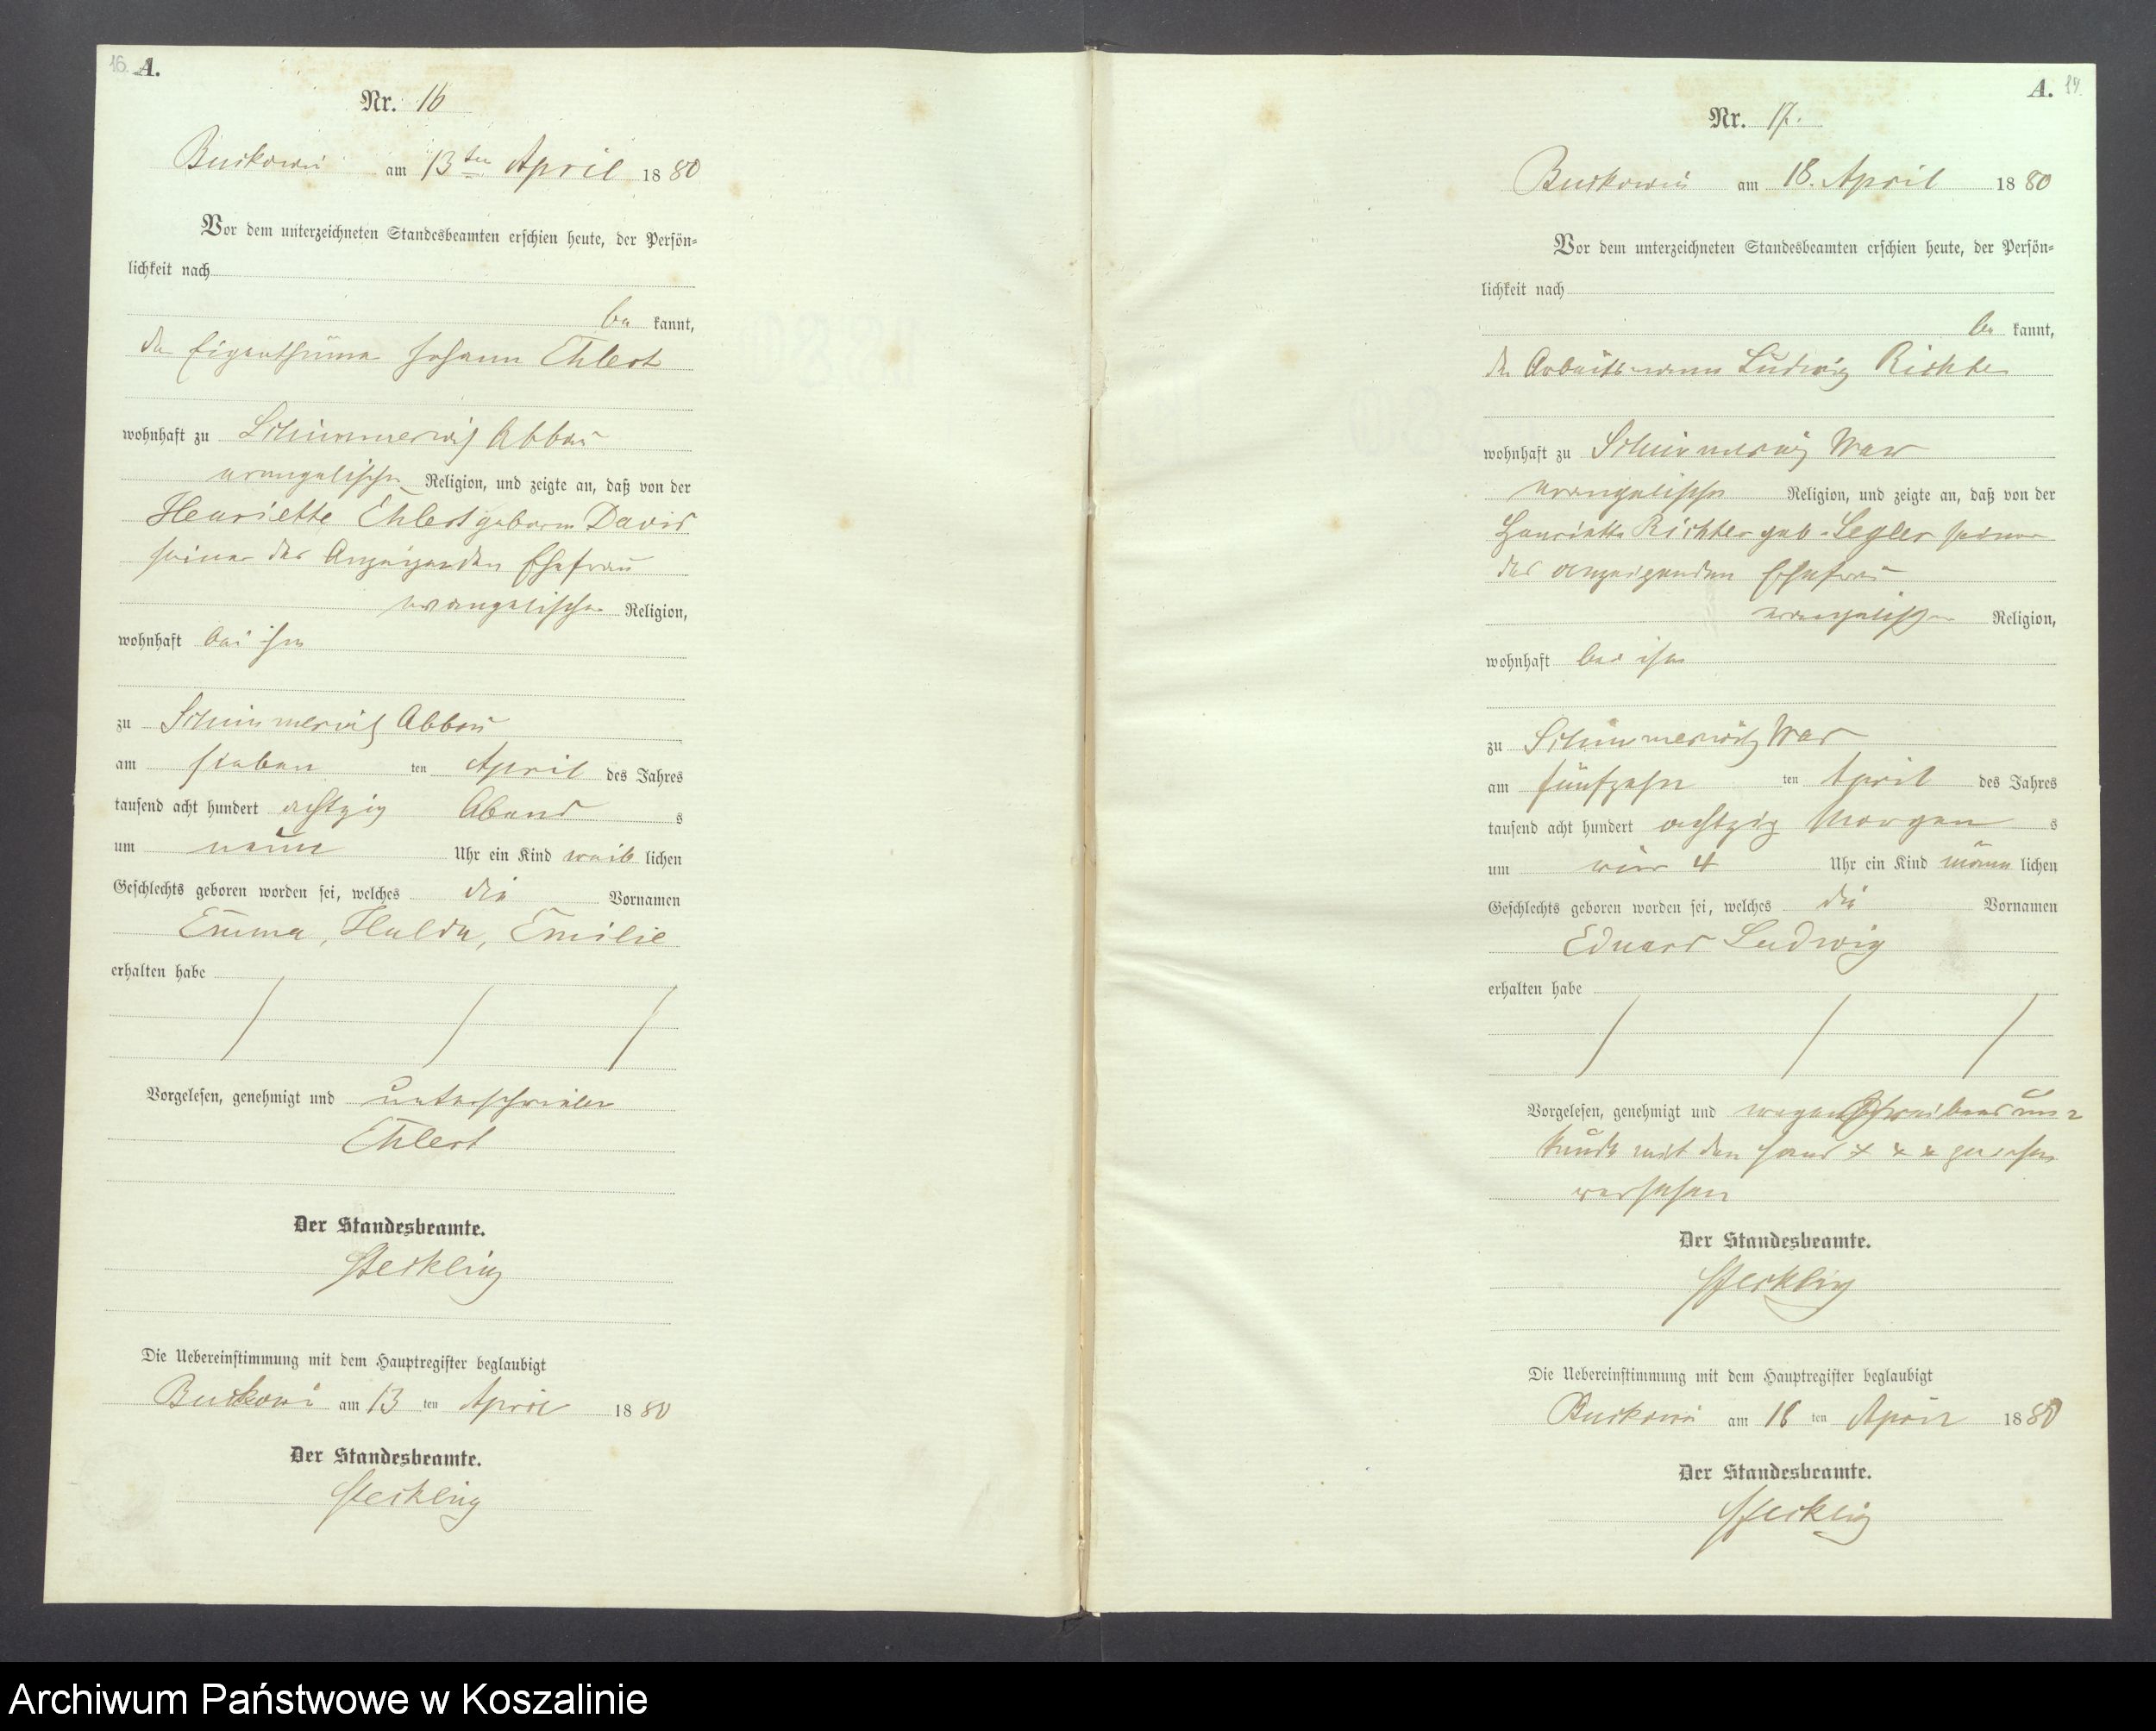 16. A.
Nr. 16
Buckowin am 13ten April 1880
Vor dem unterzeichneten Standesbeamten erschien heute, der Persön-
lichkeit nach
be kannt,
der Eigenthümer Johann Ehlert
wohnhaft zu Schimmerwitz Abbau
evangelischer Religion, und zeigte an, daß von der
Henriette Ehlert geboren David
seiner des Anzeigenden Ehefrau
evangelischer Religion,
wohnhaft bei ihm
zu Schimmerwitz Abbau
am sieben ten April des Jahres
tausend acht hundert achtzig Abend s
um neun Uhr ein Kind weib lichen
Geschlechts geboren worden sei, welches die Vornamen
Emma, Hulda, Emilie
erhalten habe
Vorgelesen, genehmigt und unterschrieben
Ehlert
Der Standesbeamte.
Steckling
Die Uebereinstimmung mit dem Hauptregister beglaubigt
Buckowin am 13 ten April 1880
Der Standesbeamte.
Steckling
A. 17.
Nr. 17.
Buckowin am 18. April 1880
Vor dem unterzeichneten Standesbeamten erschien heute, der Persön-
lichkeit nach
be kannt,
der Arbeitsmann Ludwig Richter
wohnhaft zu Schimmerwitz
evangelischer Religion, und zeigte an, daß von der
Henriette Richter geb. Segler seiner
des anzeigenden Ehefrau
evangelischer Religion,
wohnhaft bei ihm
zu Schimmerwitz
am fünfzehn ten April des Jahres
tausend acht hundert achtzig Morgen s
um vier 4 Uhr ein Kind männ lichen
Geschlechts geboren worden sei, welches die Vornamen
Eduard Ludwig
erhalten habe
Vorgelesen, genehmigt und wegen Schreibens un-
kunde mit den Hand x x x
versehen
Der Standesbeamte.
Steckling
Die Uebereinstimmung mit dem Hauptregister beglaubigt
Buckowin am 18 ten April 1880
Der Standesbeamte.
Steckling
Archiwum Państwowe w Koszalinie